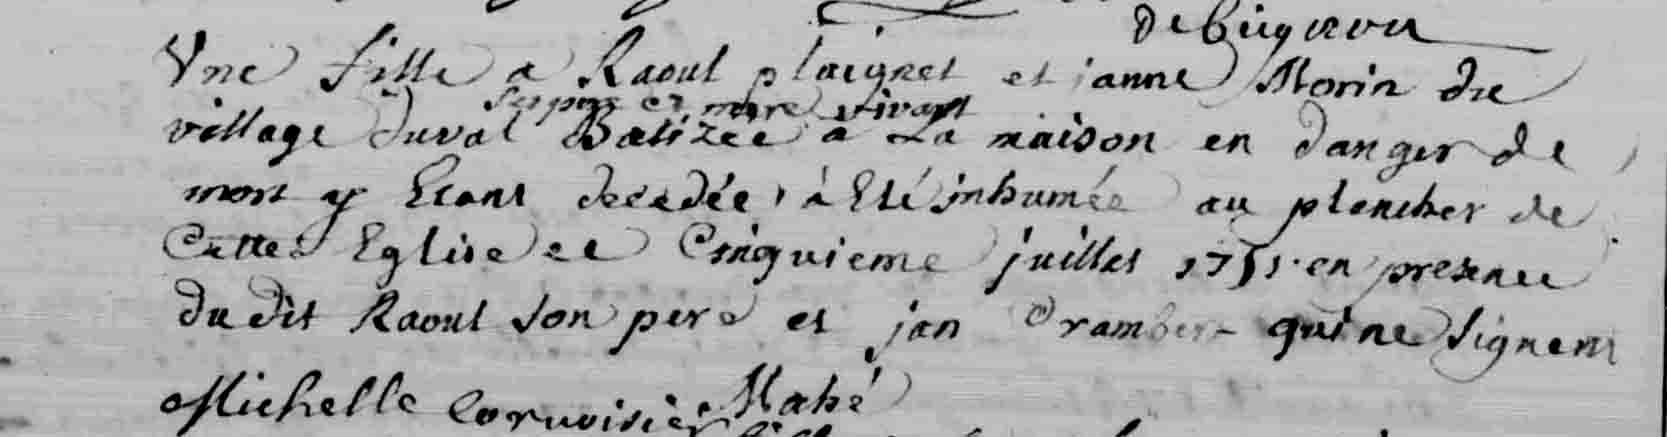 Une fille a Raoul plaignel et janne Morin du
ses pere et mere vivant
village duval Batizée a La maison en danger de
mort y Etant decedée, à Eté inhumée au plancher de
Cette Eglise le Cinquieme juillet 1751 en presence
du dit Raoul son pere et jan Drambert qui ne signent
Mahé
Michelle Corvoisier